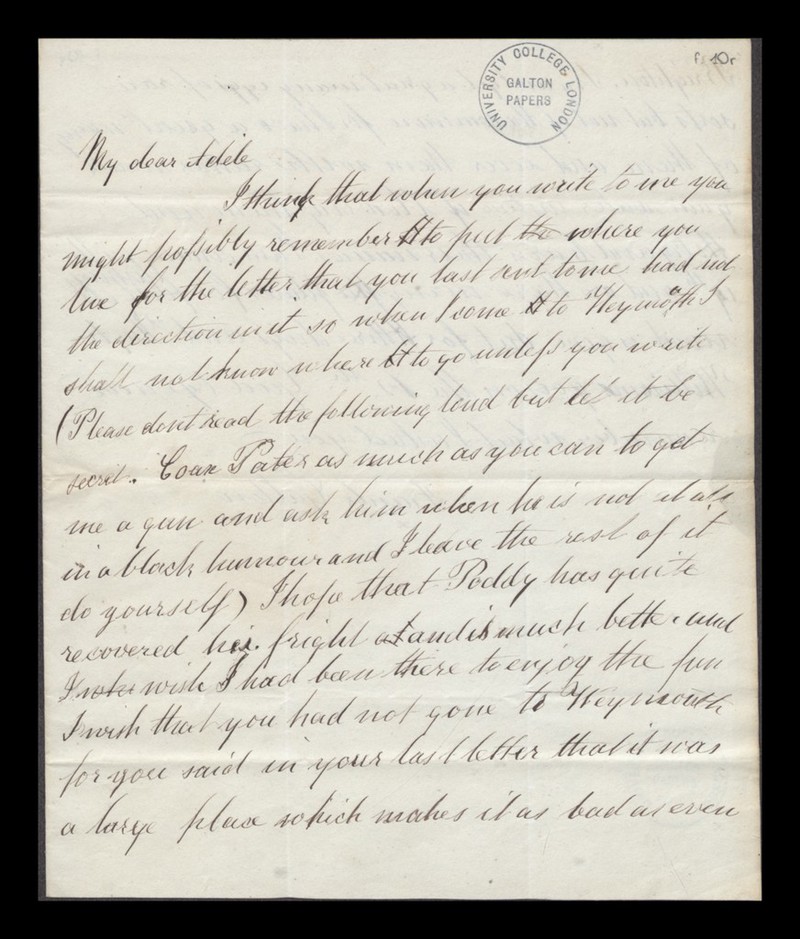 UNIVERSITY COLLEGE LONDON
GALTON
PAPERS
10r
My dear Adele
I think that when you write to me you
might possibly remember to put the where you
live for the letter that you last sent to me had not
the direction in it so when I come to Weymouth I
shall not know where to go unless you write
(Please dont read the following loud but let it be
secret. Coax Pater as much as you can to get
me a gun and ask him when he is not
in a black humour and I leave the rest of it
do yourself) I hope that Poddy has quite
recovered her fright and is much better and
I wish I had been there to enjoy the fun
I wish that you had not gone to Weymouth
for you said in your last letter that it was
a large place which makes it as bad as even